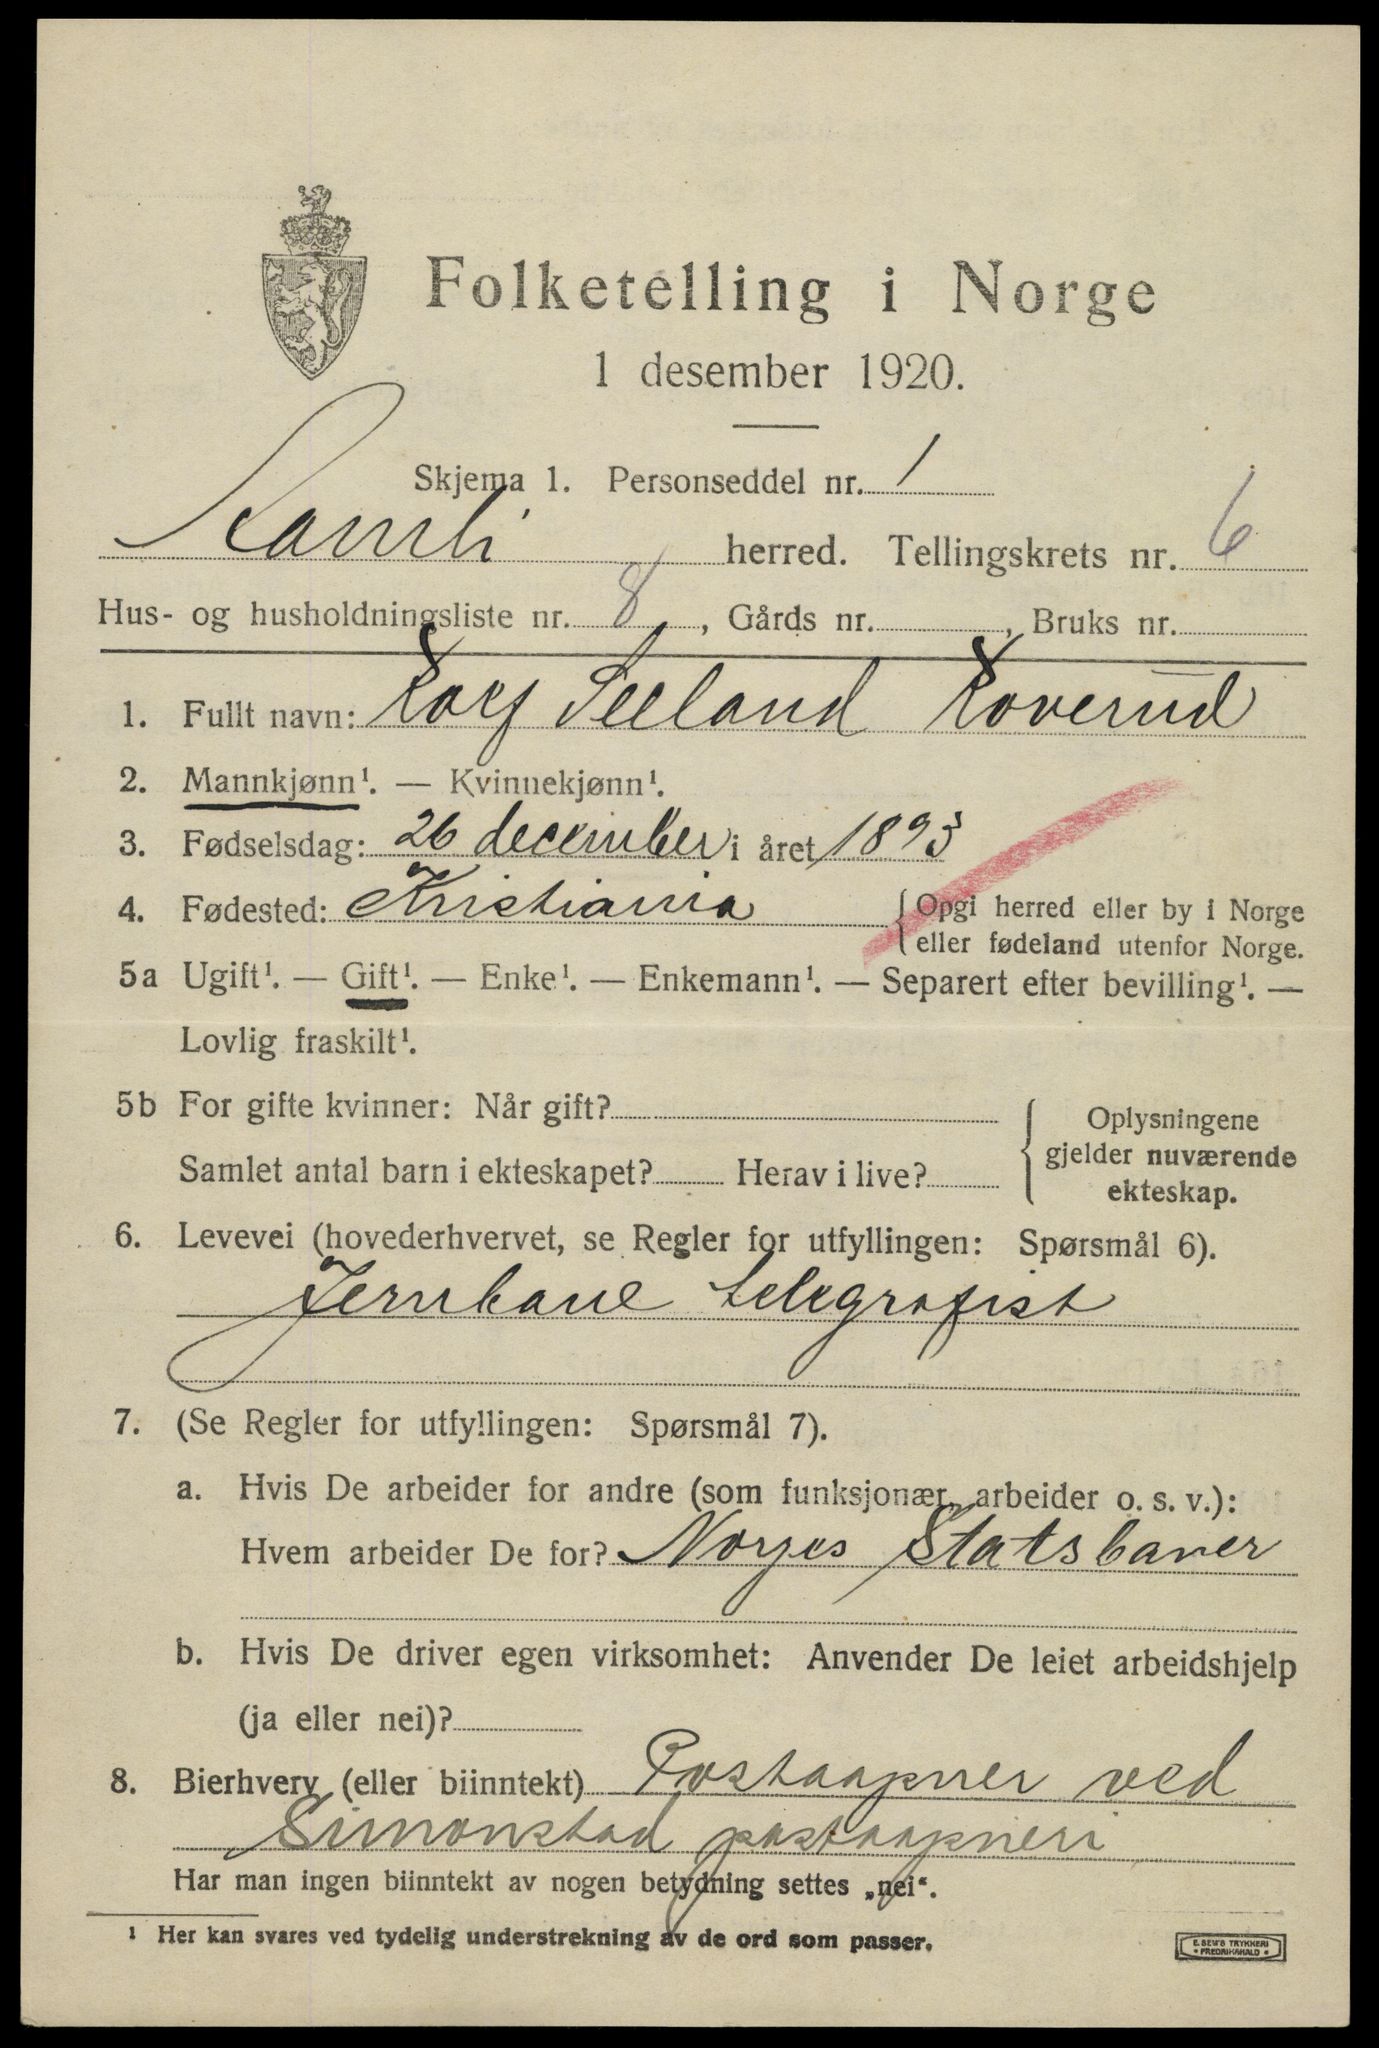 Folketelling i Norge
1 desember 1920.
Skjema 1. Personseddel nr. 1
herred. Tellingskrets nr. 6
Hus- og husholdningsliste nr. 8, Gårds nr. , Bruks nr.
1. Fullt navn: Rolf Seeland Roverud
2. Mannkjønn¹. — Kvinnekjønn¹.
3. Fødselsdag: 26 december i året 1893
4. Fødested: Kristiania {Opgi herred eller by i Norge
eller fødeland utenfor Norge.
5a Ugift¹. — Gift¹. — Enke¹. — Enkemann¹. — Separert efter bevilling¹. —
Lovlig fraskilt¹.
5b For gifte kvinner: Når gift?
Samlet antal barn i ekteskapet? Herav i live?
Oplysningene
gjelder nuværende
ekteskap.
6. Levevei (hovederhvervet, se Regler for utfyllingen: Spørsmål 6).
Jernbane telegrafist
7. (Se Regler for utfyllingen: Spørsmål 7).
a. Hvis De arbeider for andre (som funksjonær, arbeider o. s. v.):
Hvem arbeider De for? Norges Statsbaner
b. Hvis De driver egen virksomhet: Anvender De leiet arbeidshjelp
(ja eller nei)?
8. Bierhverv (eller biinntekt) Postaapner ved
Simonstad postaapneri
Har man ingen biinntekt av nogen betydning settes „nei“.
¹ Her kan svares ved tydelig understrekning av de ord som passer.
E. SEM'S TRYKKERI
• FREDRIKSHALD •